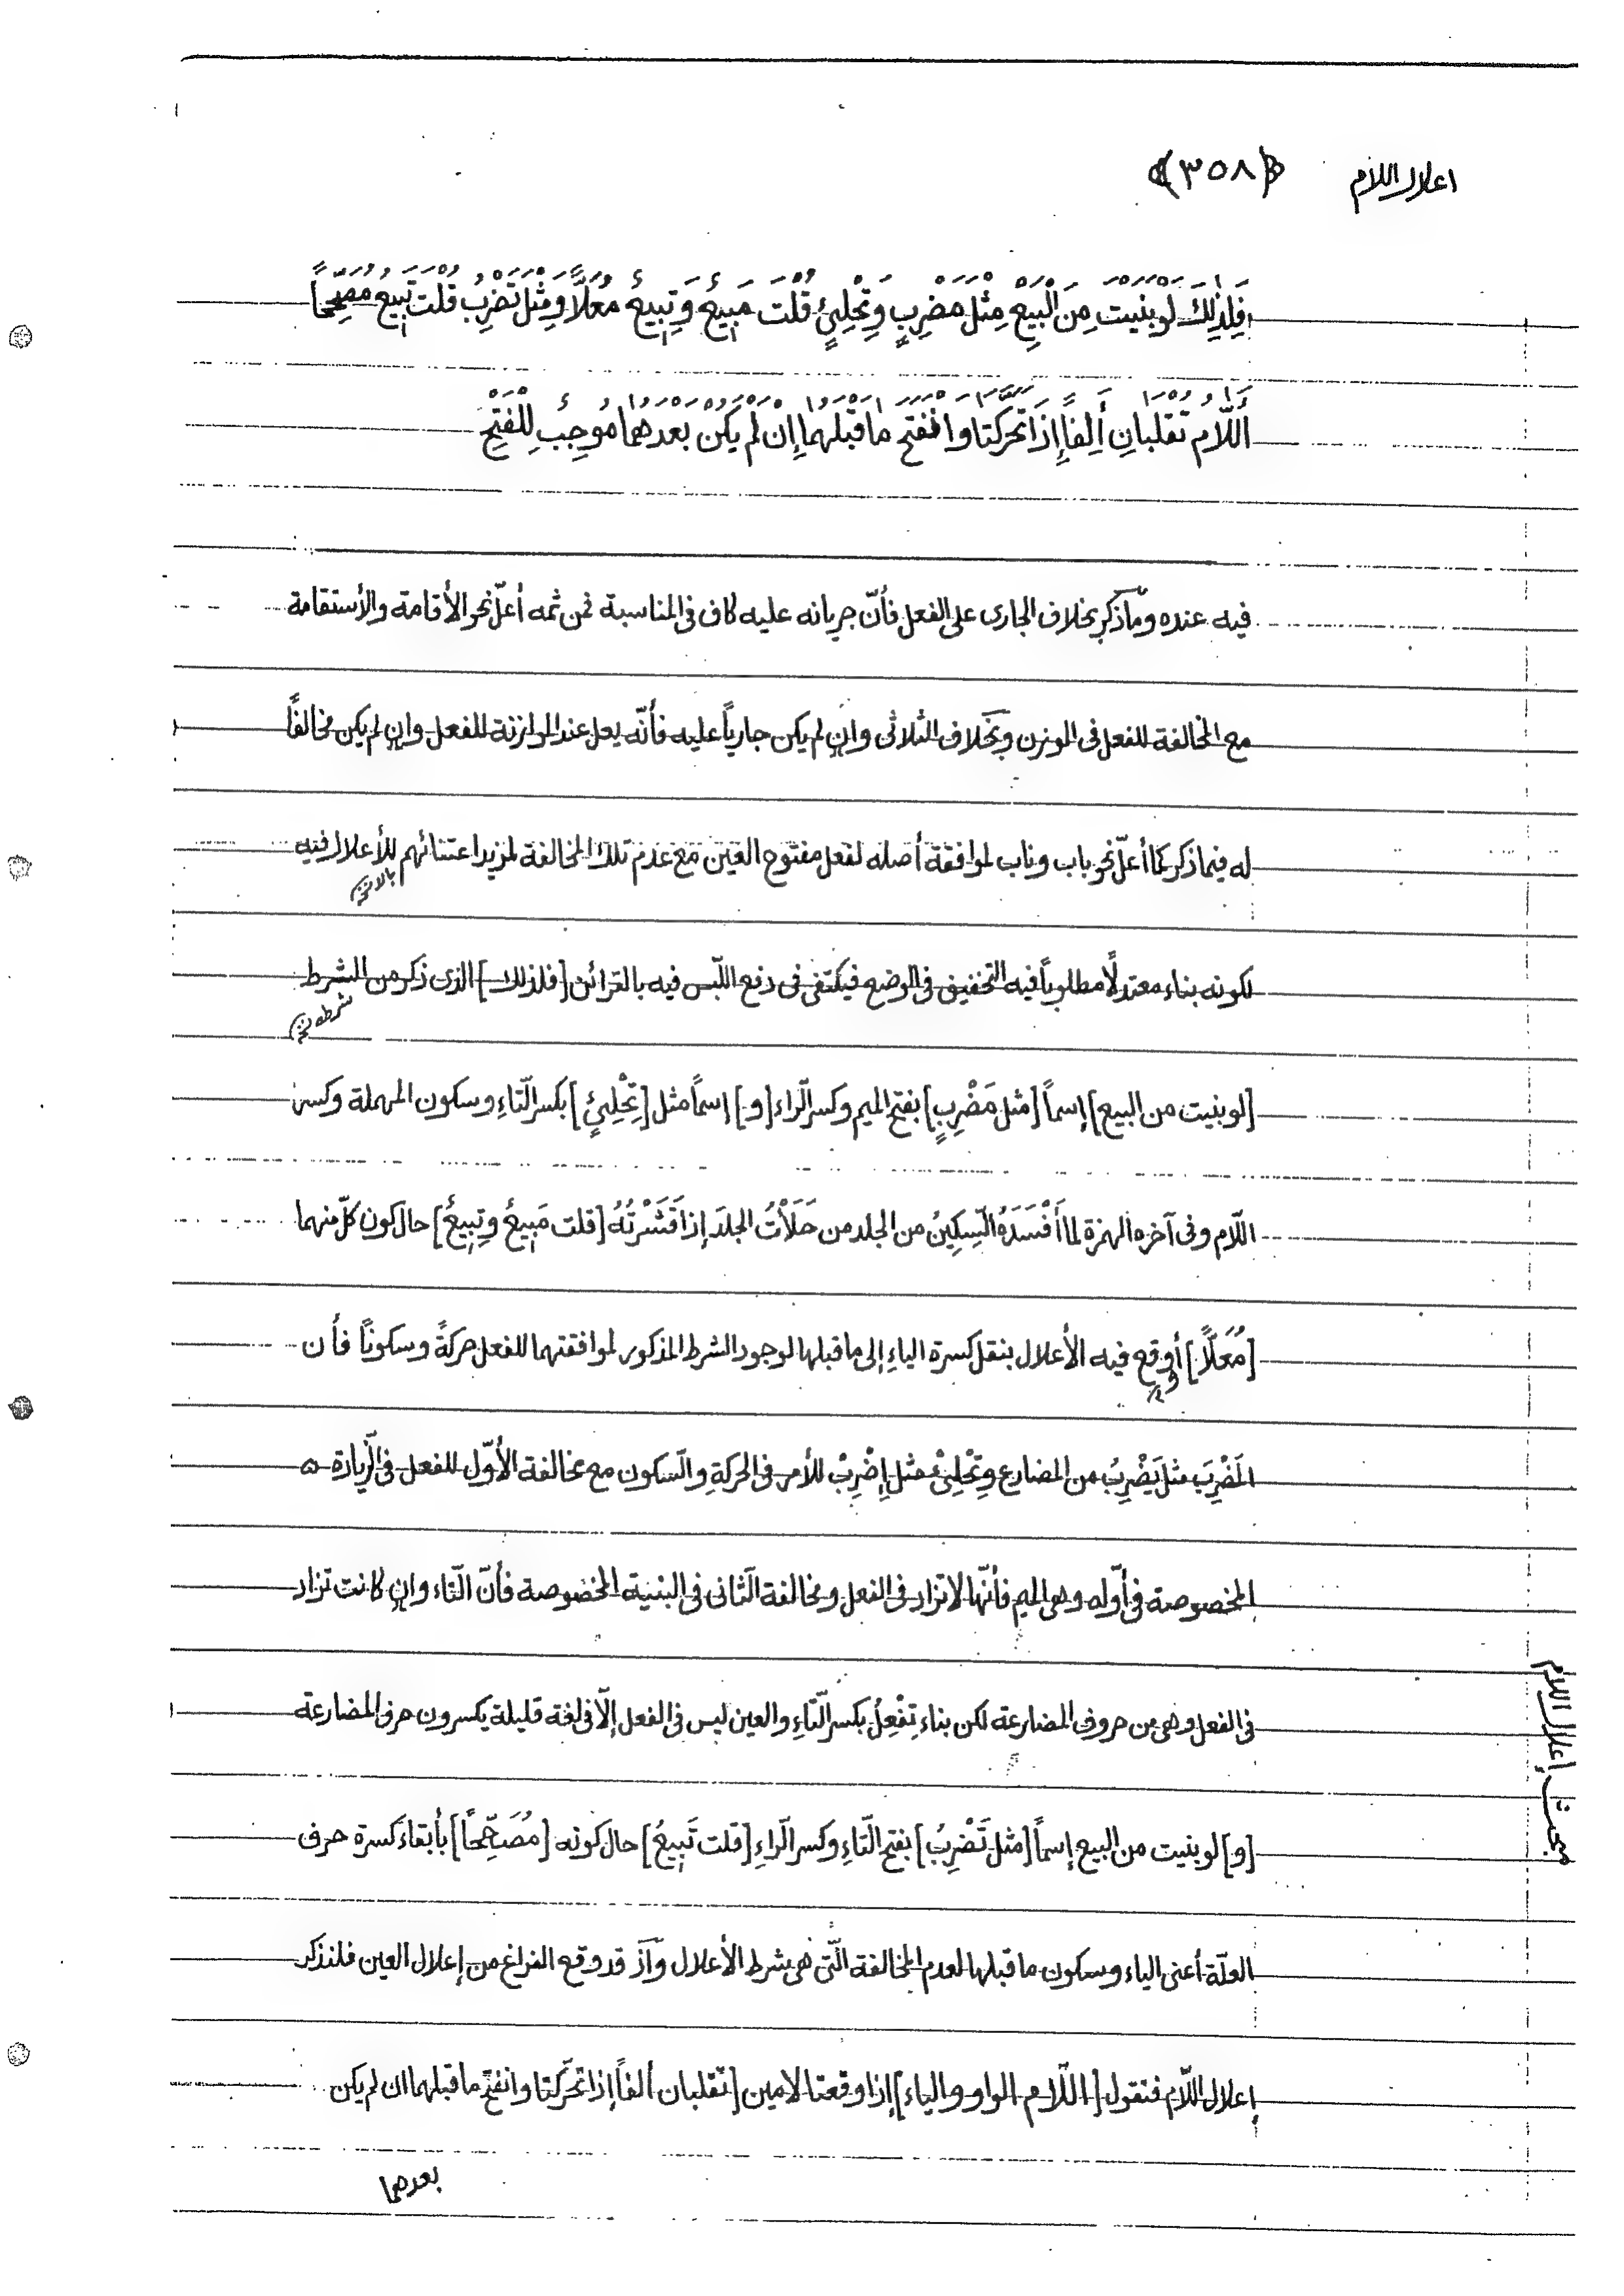 اعلال اللام ﴿٣٥٨﴾
فَلِذٰلِكَ لَوْ بَنَيْتَ مِنَ الْبَيْعِ مِثْلَ مَضْرِبٍ وَتِحْلِئٍ قُلْتَ مَبِيعٌ وَتِبِيعٌ مُعَلًّا وَمِثْلَ تَضْرِبُ قُلْتَ تَبْيِعُ مُصَحَّحاً
أَللَّامُ تُقْلَبَانِ أَلِفاً إِذَا تَحَرَّكَتَا وَانْفَتَحَ مَا قَبْلَهُمَا إِنْ لَمْ يَكُنْ بَعْدَهُمَا مُوجِبٌ لِلْفَتْحِ
فيه عنده وما ذكر بخلاف الجارى على الفعل فأنّ جريانه عليه كاف فى المناسبة فمن ثمه أعلّ نحو الأقامة والأستقامة
مع المخالفة للفعل فى الوزن وبخلاف الثلاثى وان لم يكن جارياً عليه فأنّه يعل عند الموازنة للفعل وان لم يكن مخالفًا
له فيما ذكر كما أعلّ نحو باب وناب لموافقة أصله لفعل مفتوح العين مع عدم تلك المخالفة لمزيد اعتنائهم للأعلال فيه
بالا نخ
لكونه بناء معتدلًا مطلوباً فيه التخفيف فى الوضع فيكتفى فى دفع اللبّس فيه بالقرائن [فلذلك] الذى ذكر من الشرط
شرطه نخ
[لو بنيت من البيع] إسماً [مثل مَضْرِبٍ] بفتح الميم وكسر الرّاء [و] إسماً مثل [تِحْلِئٍ] بكسر التّاءِ وسكون المهملة وكسر
اللّام وفى آخره الهمزة لما أَفْسَدَهُ السّكِينُ من الجلد من حَلَأْتُ الجلدَ إذا قَشَرْتُهُ [قلت مَبِيعٌ وتِبِيعٌ] حال كون كلّ منهما
[مُعَلًّا] أوقع فيه الأعلال بنقل كسرة الياءِ إلى ما قبلها لوجود الشرط المذكور لموافقتهما للفعل حركةً وسكوناً فأن
المَضْرِبَ مثل يَضْرِبُ من المضارع وتِحْلِئْ مثل إضْرِبْ للأمر فى الحركةِ والسّكون مع مخالفة الأوّل للفعل فى الزّيادة
المخصوصة فى أوّله وهى الميم فأنّها لا تزاد فى الفعل ومخالفة الثّانى فى البنية المخصوصة فأنّ التّاء وان كانت تزاد
فى الفعل وهى من حروف المضارعة لكن بناء تِفْعِلُ بكسر التّاءِ والعين ليس فى الفعل إلّا فى لغة قليلة يكسرون حرف المضارعة
[و] لو بنيت من البيع إسماً [مثل تَضْرِبُ] بفتح التّاءِ وكسر الرّاءِ [قلت تَبْيِعُ] حال كونه [مُصَحَّحًا] بأبقاء كسرة حرف
العلّة أعنى الياء وسكون ما قبلها لعدم المخالفة الّتى هى شرط الأعلال وآذ قد وقع الفراغ من إعلال العين فلنذكر
إعلال اللّام فنقول [اللّام الواو والياء] إذا وقعتا لامين [تقلبان ألفاً إذا تحرّكتا وانفتح ما قبلهما ان لم يكن
بعدهما
مبحث إعلال اللام